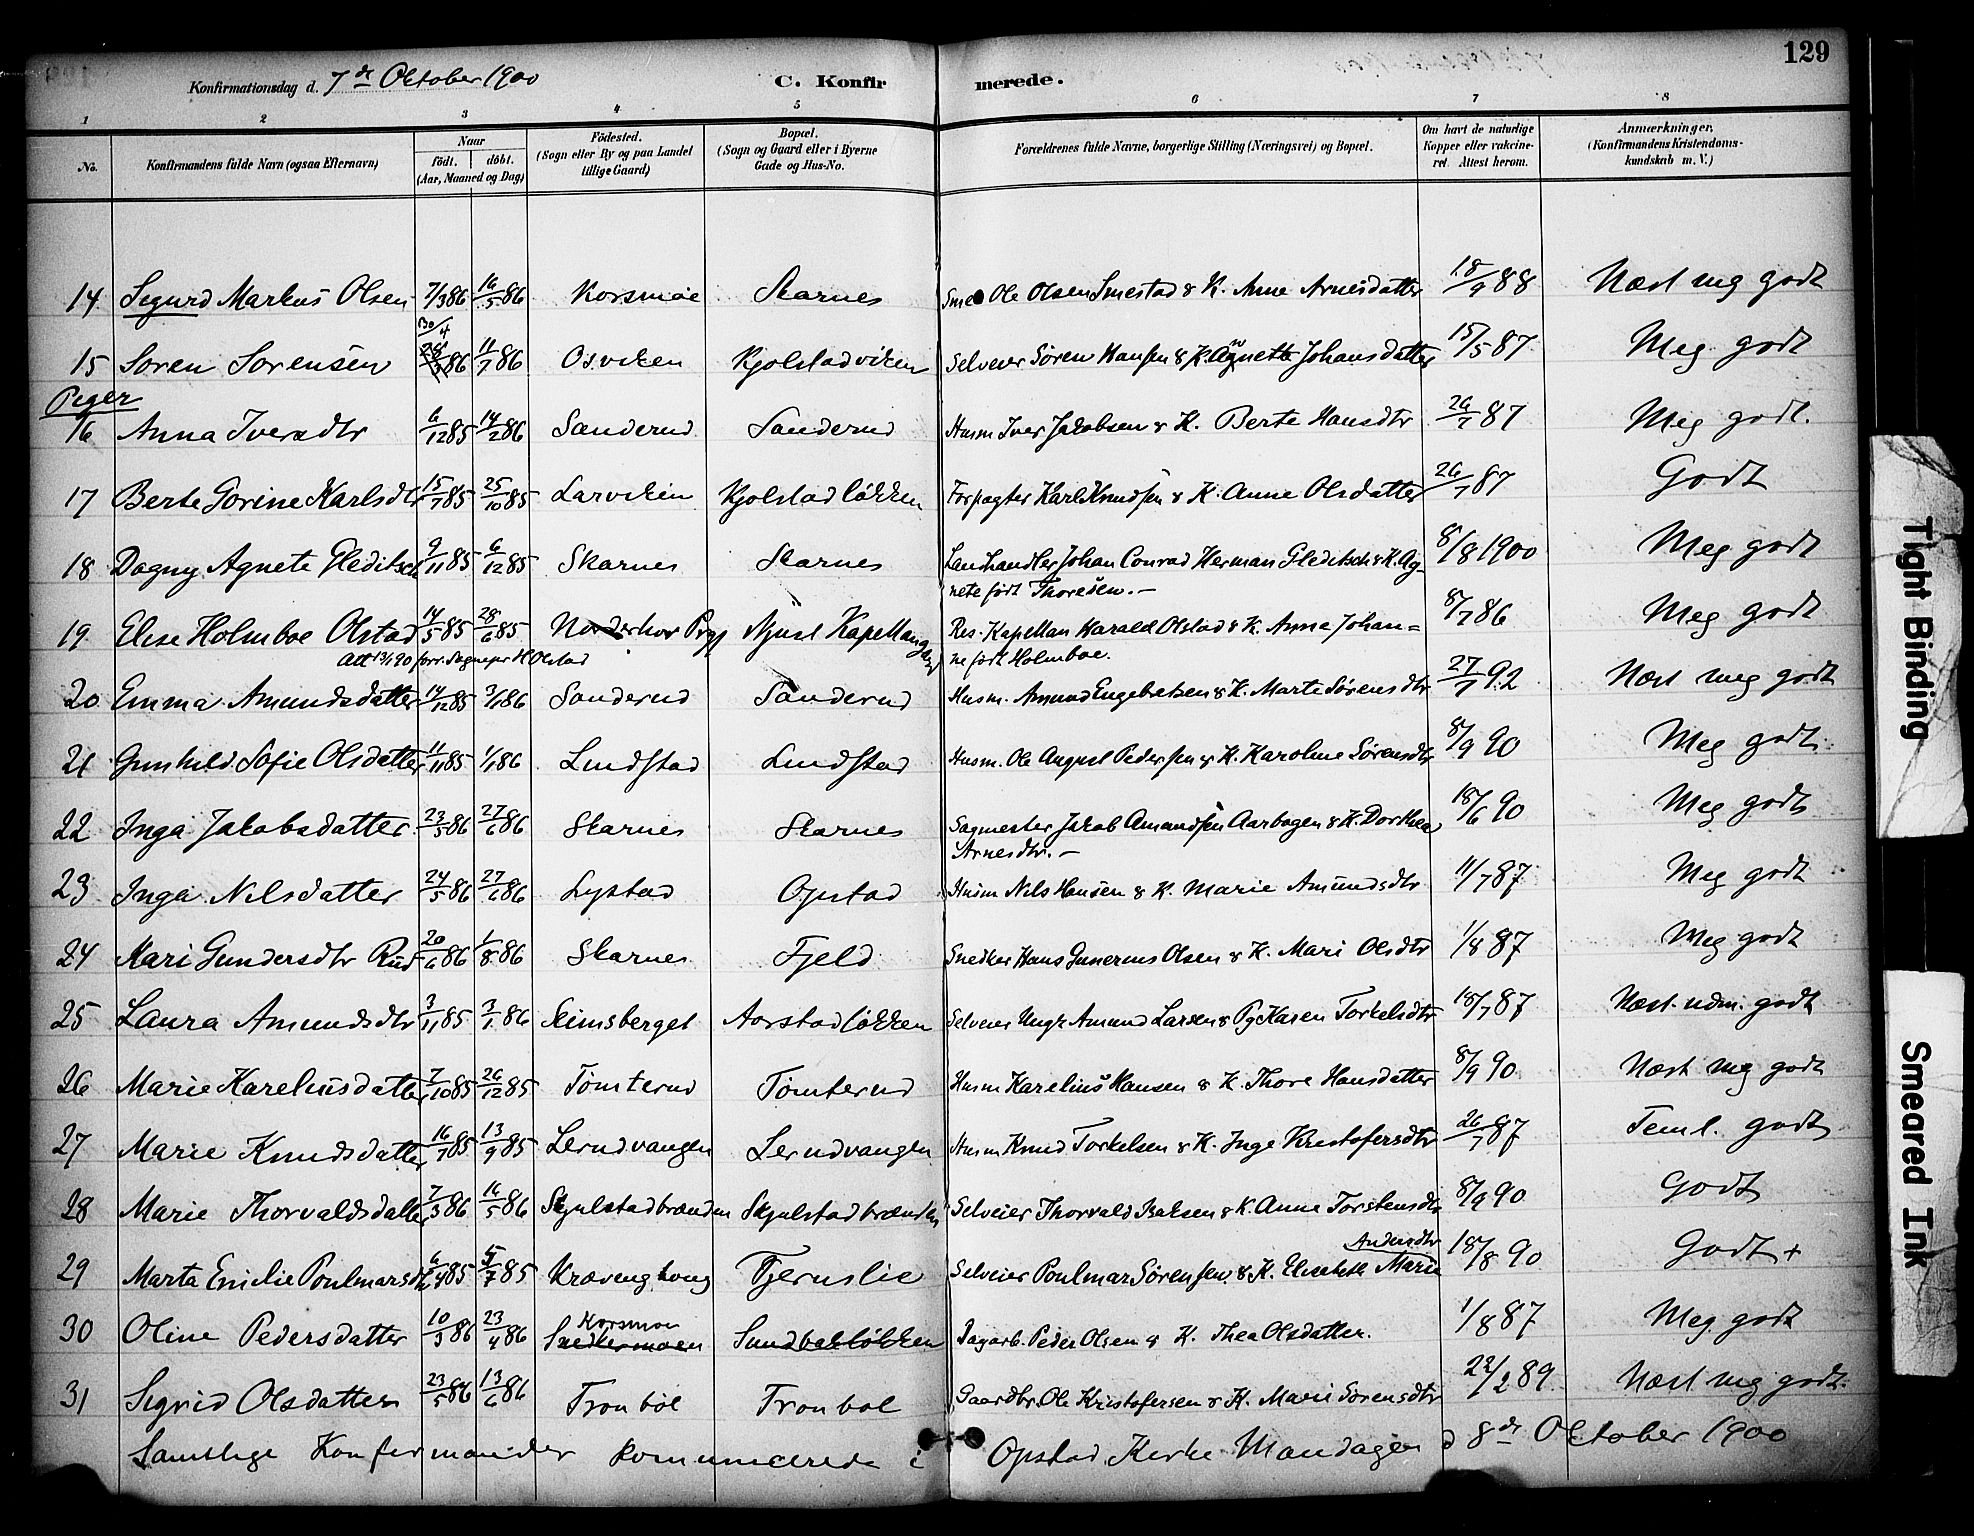 129
Konfirmationsdag d. 7de Oktober 1900 C. Konfirmerede.
1 2 3 4 5 6 7 8
No. Konfirmandens fulde Navn (ogsaa Efternavn) Naar födt. döbt. (Aar, Maaned og Dag) Födested. (Sogn eller By og paa Landet tillige Gaard) Bopæl. (Sogn og Gaard eller i Byerne Gade og Hus-No. Forældrenes fulde Navne, borgerlige Stilling (Næringsvei) og Bopæl. Om havt de naturlige Kopper eller vakcineret. Attest herom. Anmærkninger, (Konfirmandens Kristendomskundskab m. V.)
14 Sigurd Markus Olsen 7/3 86 16/5 86 Korsmoe Skarnes Smed Ole Olsen Smestad & K. Anne Arnesdatter 18/9 88 Næst meg godt
15 Søren Sørensen 30/4 86 11/7 86 Osviken Kjølstadviken Selveier Søren Hansen & K. Agnette Johansdatter 15/5 87 Meg godt
Piger
16 Anna Iversdtr 6/12 85 14/2 86 Sanderud Sanderud Husm Iver Jakobsen & K. Berte Hansdtr 26/7 87 Meg godt.
17 Berte Gorine Karlsdtr 15/7 85 25/10 85 Larviken Kjølstadløkken Forpagter Karl Knudsen & K. Anne Olsdatter 26/7 87 Godt
18 Dagny Agnete Gleditsch 9/11 85 6/12 85 Skarnes Skarnes Landhandler Johan Conrad Herman Gleditsch & K. Ag-
nete født Thoresen.-
8/8 1900 Meg godt
19 Elise Holmboe Olstad 14/5 85 28/6 85 Norderhov Prgj Njusl Kapellangaard Res. Kapellan Harald Olstad & K. Anna Johan=
ne født Holmboe.
8/7 86 Meg godt
Att 13/1 90 forr. Sognepr H Olstad
20 Emma Amundsdatter 14/12 85 3/1 86 Sanderud Sanderud Husm. Amund Engebretsen & K. Marte Sørensdtr 27/7 92 Næst meg godt
21 Gunhild Sofie Olsdatter 11/11 85 1/1 86 Lundstad Lundstad Husm. Ole August Pedersen & K. Karoline Sørensdtr 8/9 90 Meg godt
22 Inga Jakobsdatter 23/5 86 27/6 86 Skarnes Skarnes Sagmester Jakob Amundsen Aarbogen & K. Dorthea
Arnesdtr.-
18/6 90 Meg godt
23 Inga Nilsdatter 24/5 86 27/6 86 Lystad Opstad Husm Nils Hansen & K. Marie Amundsdtr 11/7 87 Meg godt
24 Kari Gundersdtr Rud 20/6 86 1/8 86 Skarnes Fjeld Snedker Hans Gunerius Olsen & K. Mari Olsdtr 1/8 87 Meg godt
25 Laura Amundsdtr 3/11 85 3/1 86 Seimsberget Aarstadløkken Selveier Ungk Amund Larsen & Pg Karen Torkelsdtr 18/7 87 Næst. udm. godt
26 Marie Kareliusdatter 7/10 85 26/12 85 Tømterud Tømterud Husm Karelius Hansen & K. Thore Hansdatter 8/9 90 Næst meg godt
27 Marie Knudsdatter 16/7 85 13/9 85 Lerudvangen Lerudvangen Husm Knud Torkelsen & K. Inge Kristofersdtr 26/7 87 Teml. godt
28 Marie Thorvaldsdatter 7/3 86 16/5 86 Skjulstadbrænden Skjulstadbrænden Selveier Thorvald Isaksen & K. Anne Torstensdtr 8/9 90 Godt
29 Marta Emilie Poulmarsdtr 6/4 85 5/7 85 Kræveng houg Tjernslie Selveier Poulmar Sørensen & K. Elisabeth Marie Andersdtr 18/8 90 Godt +
30 Oline Pedersdatter 10/3 86 23/4 86 Korsmoe Snedkermoen Sundbakløkken Dagarb. Peder Olsen & K. Thea Olsdatter. 1/8 87 Meg godt
31 Sigrid Olsdatter 23/5 86 13/6 86 Tronbøl Tronbøl Gaardbr. Ole Kristofersen & K. Marie Sørensdtr 22/2 89 Næst meg godt.
Samtlige Konfirmander kommunicerede i Opstad Kirke Mandagen d 8de Oktober 1900
Tight Binding
Smeared Ink